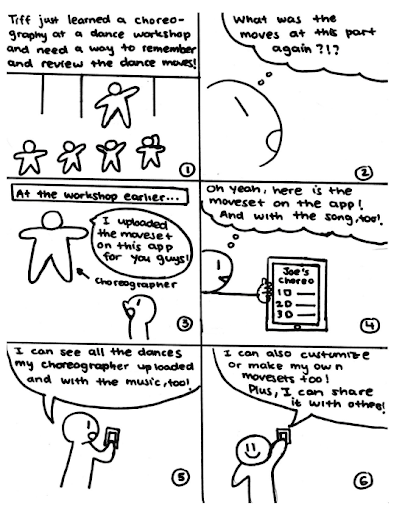 Tiff just learned a choreo-
graphy at a dance workshop
and need a way to remember
and review the dance moves!
1
What was the
moves at this part
again?!?
2
At the workshop earlier...
I uploaded
the moveset
on this app
for you guys!
choreographer
3
Oh yeah, here is the
moveset on the app!
And with the song, too!
Joe's
Choreo
1
2
3
4
I can see all the dances
my choreographer uploaded
and with the music, too!
5
I can also custumize
or make my own
movesets too!
Plus, I can share
it with others!
6